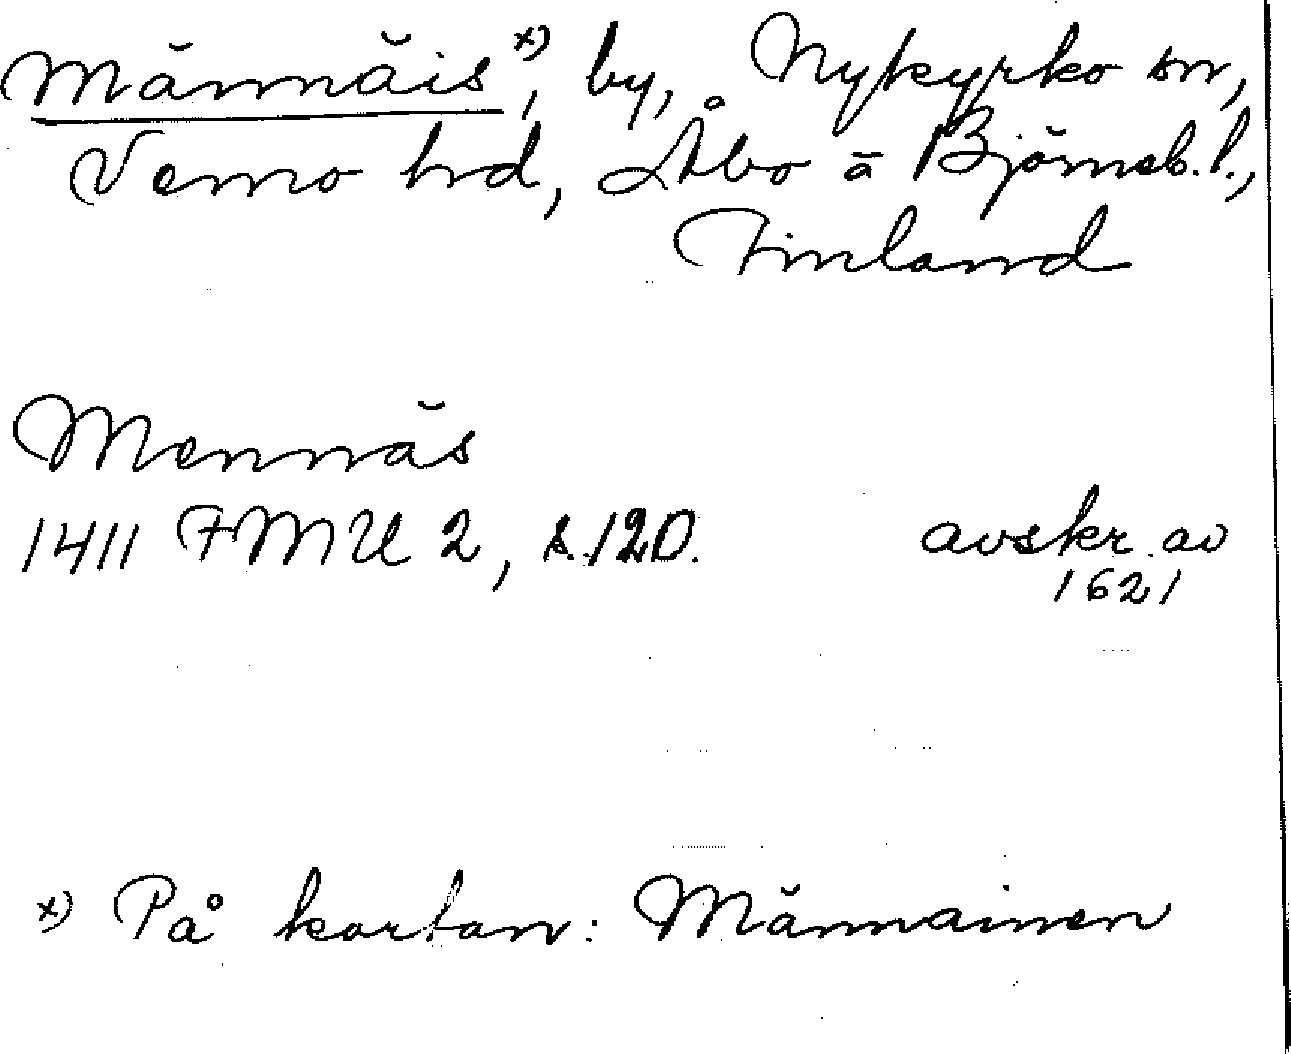 Männäis x), by, Nykyrko sn,
Vemo hd, Åbo ä Björneb. l.,
Finland
Mennäs
1411 FMU 2, s. 120. avskr. av
1621
x) På kartan: Männainen